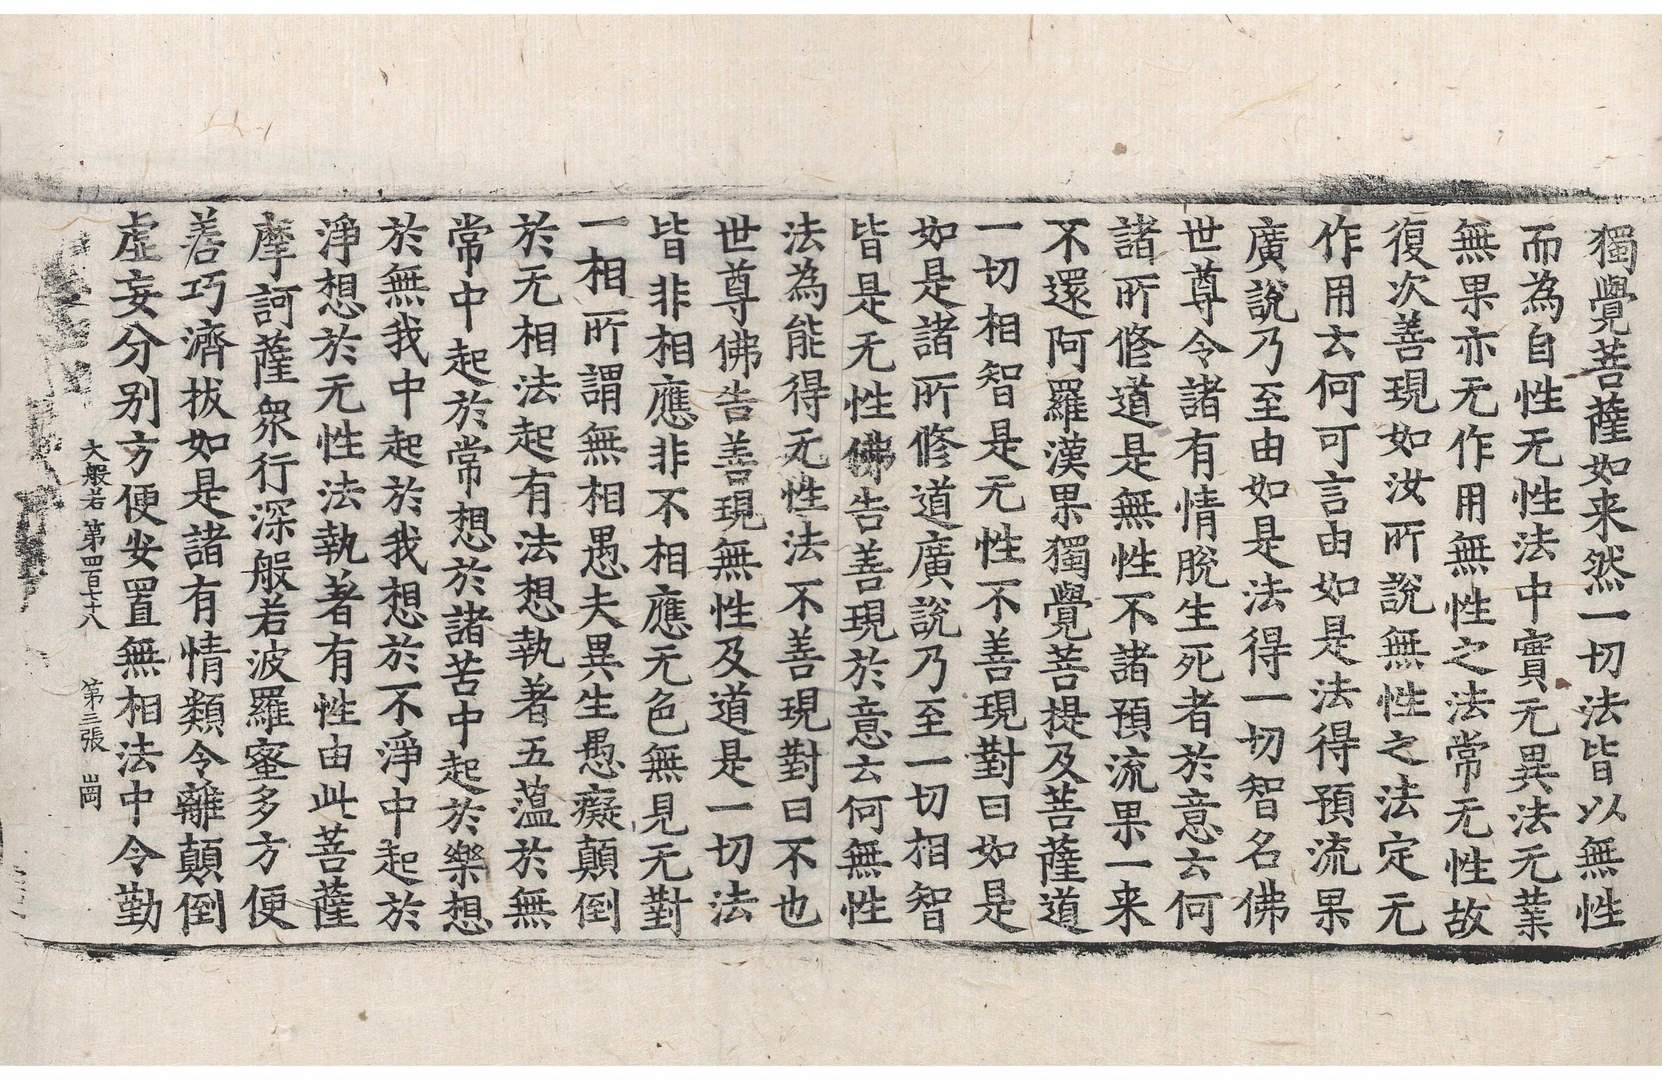 獨覺菩薩如来然一切法皆以無性
而為自性无性法中實无異法无業
無果亦无作用無性之法常无性故
復次善現如汝所說無性之法定无
作用云何可言由如是法得預流果
廣說乃至由如是法得一切智名佛
世尊令諸有情脫生死者於意云何
諸所修道是無性不諸預流果一来
不還阿羅漢果獨覺菩提及菩薩道
一切相智是无性不善現對曰如是
如是諸所修道廣說乃至一切相智
皆是无性佛告善現於意云何無性
法為能得无性法不善現對曰不也
世尊佛告善現無性及道是一切法
皆非相應非不相應无色無見无對
一相所謂無相愚夫異生愚癡顛倒
於无相法起有法想執著五薀於無
常中起於常想於諸苦中起於樂想
於無我中起於我想於不淨中起於
淨想於无性法執著有性由此菩薩
摩訶薩衆行深般若波羅蜜多方便
善巧濟拔如是諸有情類令離顛倒
虛妄分别方便安置無相法中令勤
大般若第四百七十八 第三張 岡